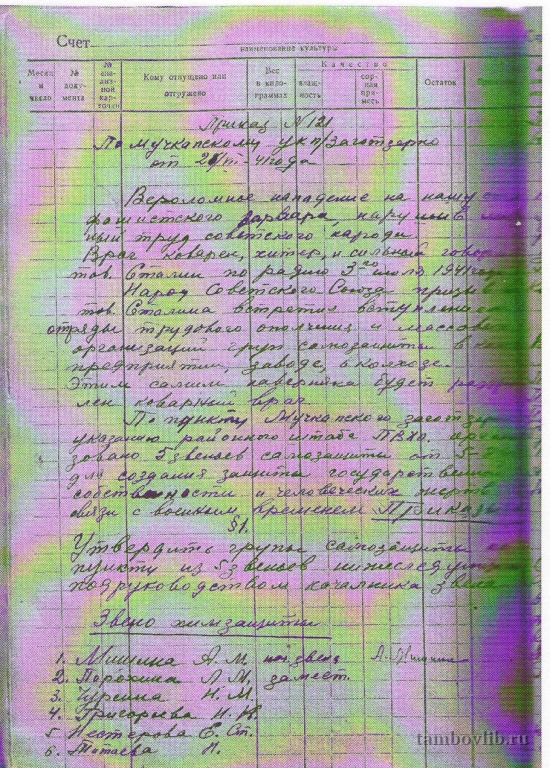 Счет
наименование культуры
Месяц и число
№ документа
№ анализной карточки
Кому отпущено или отгружено
Вес в килограммах
Качество
влажность
сорная примесь
Остаток
Приказ N 121
По Мучкапскому укп/Заготзерно
от 2 /VII 41 года
Вероломное нападение на нашу
фашистского варвара, нарушив
ный труд советского народа.
Враг коварен, хитер, и сильный говор
тов. Сталин по радио 3го июля 1941 года
Народ Советского Союза призыв
тов. Сталина встретил вступлением
отряды трудового ополчения и массов
организаций груп самозащиты в
предприятии, заводе, в колхозе.
Этим самим наверняка будет раз
лен коварный враг.
По пункту Мучкапского заготзер
указанию районного штаба ПВХО
зовано 5 звеньев самозащиты от 5-
для создания защиты государствен
собственности и человеческих жертв
связи с военным временем Приказы
§1.
Утвердить групы самозащиты
пункту из 5 звеньев нижеследу
под руководством начальника звена
Звено химзащиты
1. Мишина А. М. нач. звена
2. Порохина Л. М. замест.
3. Н. М.
4. Григорьева Н. К.
5. Нестерова Е. Ст.
6. Тотаева М.
tambovlib.ru